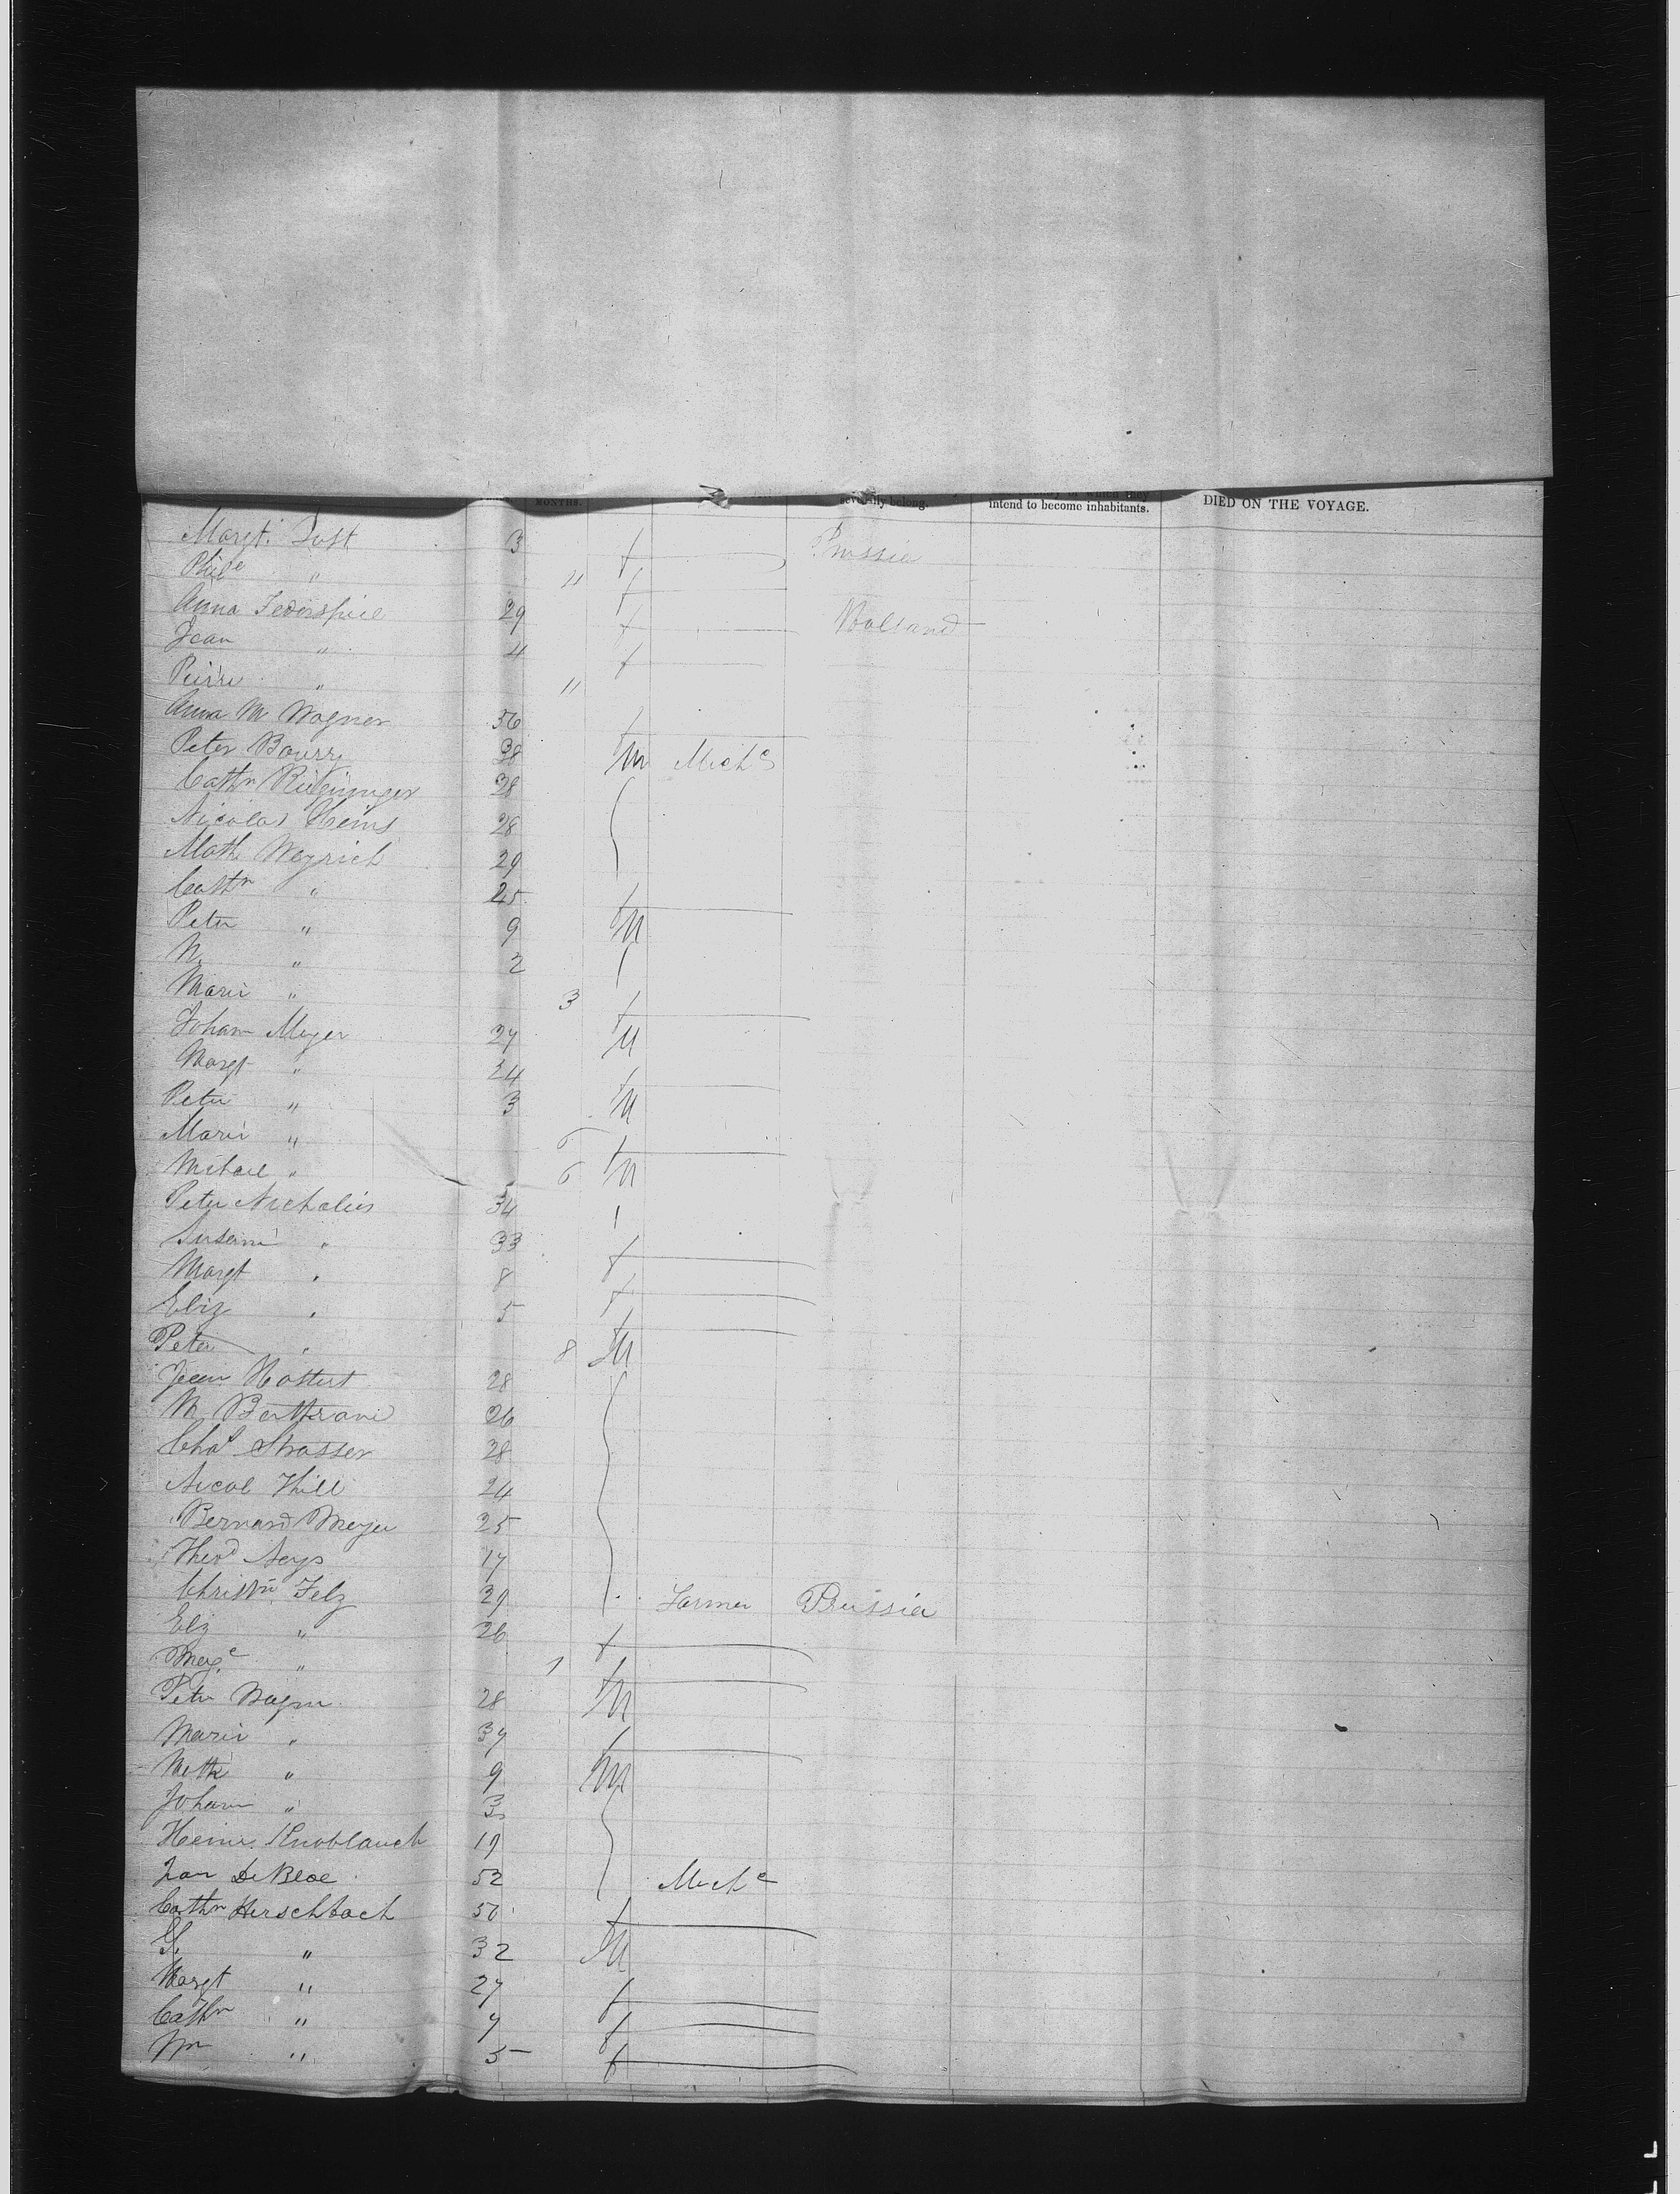 MONTHS. severally belong. of which they intend to become inhabitants. DIED ON THE VOYAGE.
Margt. Dost 3 f Prussia
Phile " 11 f
Anna Federspiel 29 f Holland
Jean " 4 f
Peirre " 11
Anna M Wagner 56 f
Peter Bourry 38 m Mechc
Cathn 28
Nicolas Heins 28
Math Weyrich 29
Cathn " 25 f
Peter " 9 M
N. " 2
Marie " 3 f
Johann Meyer 27 M
Margt " 24 f
Peter " 3 M
Marie " 6 f
Mihael " 6 M
Peter Nicholius 34
Susanne " 33 f
Margt " 8 f
Eliz " 5 f
Peter " 8 M
Jean Hostert 28
M Berthrand 26
Chas Strasser 28
Nicol Thill 24
Bernard Meyer 25
Theod Seys 17
Christn Felz 39 Farmer Prussia
Elz " 26 f
" 1 f
Peter Wagner 28 M
Marie " 37 f
Meth " 9 M
Johann " 3
Heinr. Knoblauch 19
Jean De Bloe 52 Mechc
Cathn Herschbach 50 f
G. " 32 M
Margt " 27 f
Cathn " 7 f
Wm " 5 f